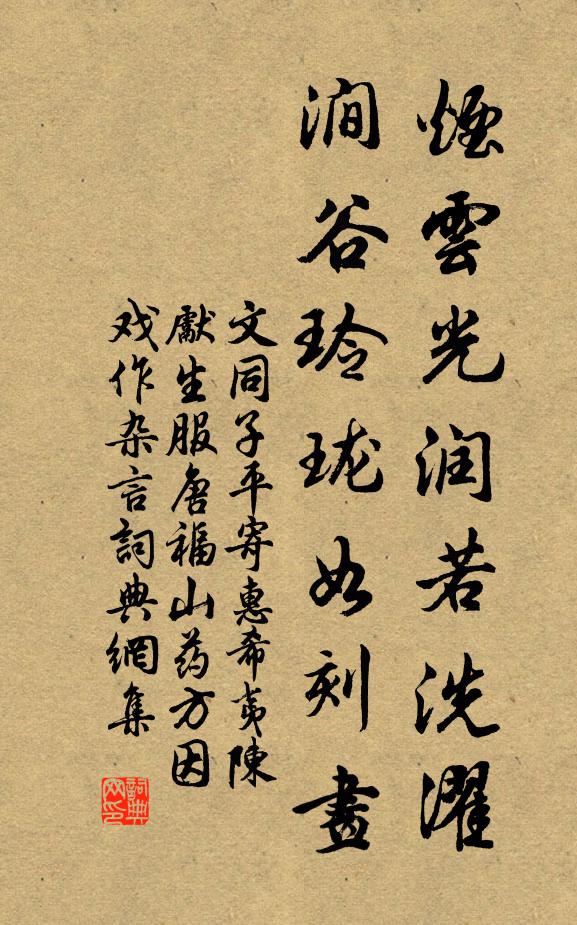 煙雲光润若洗濯
澗谷玲珑如刻畫
文同子平寄惠希夷陳
獻生服唐福山药方因
戏作杂言詞典網集
詞典网印